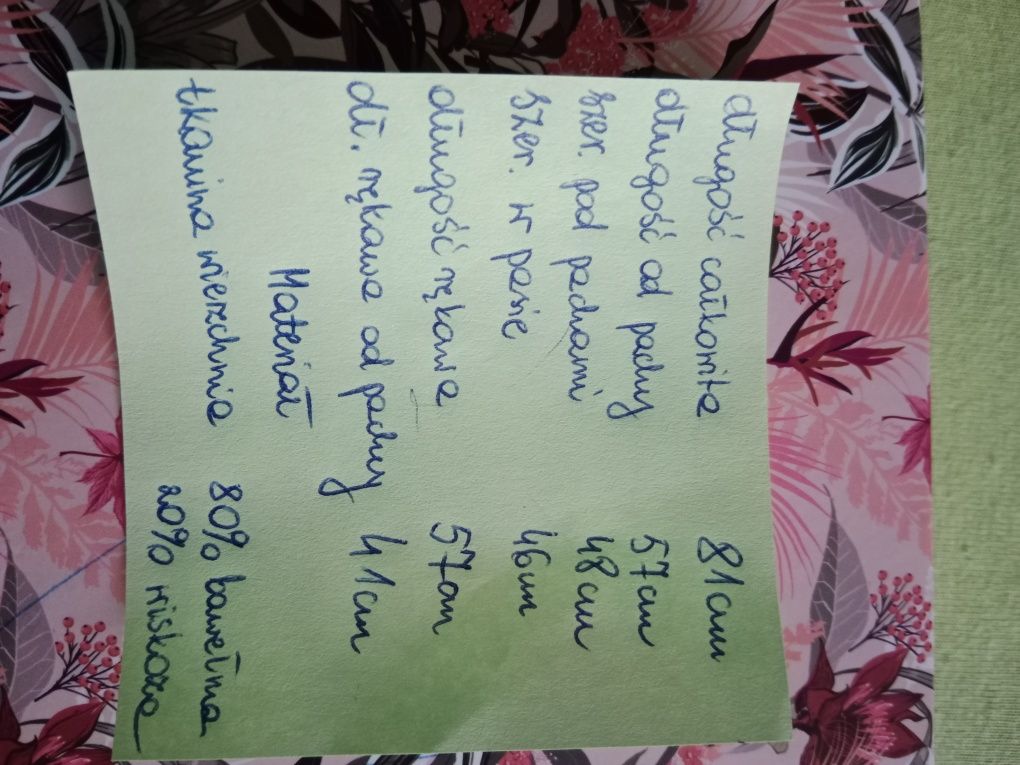 długość całkowita 81cm
długość od pachy 57cm
szer. pod pachami 48cm
szer. w pasie 46cm
długość rękawa 57cm
dł. rękawa od pachy 41cm
Materiał
tkanina wierzchnia 80% bawełna
20% wiskoza